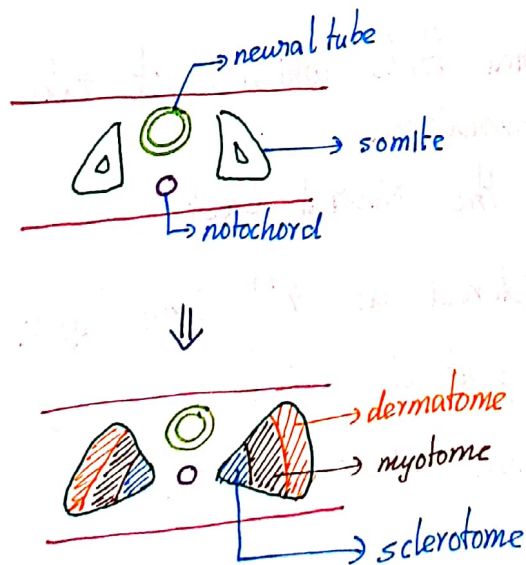 neural tube
somite
notochord
dermatome
myotome
sclerotome